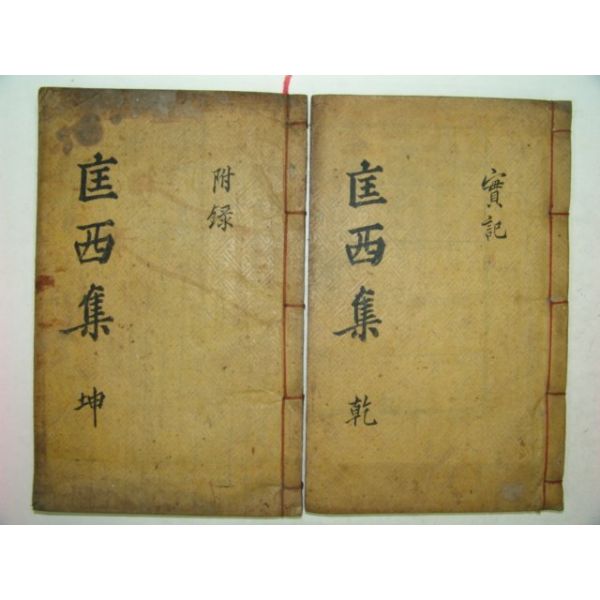 實記
匡西集 乾
附録
匡西集 坤